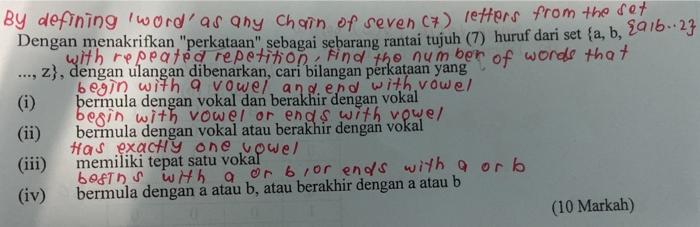 By defining 'word' as any chain of seven (7) letters from the set
Dengan menakrifkan "perkataan" sebagai sebarang rantai tujuh (7) huruf dari set {a, b, {a,b..z}
with repeated repetition, find the number of words that
..., z}, dengan ulangan dibenarkan, cari bilangan perkataan yang
begin with a vowel and end with vowel
(i) bermula dengan vokal dan berakhir dengan vokal
begin with vowel or ends with vowel
(ii) bermula dengan vokal atau berakhir dengan vokal
Has exactly one vowel
(iii) memiliki tepat satu vokal
begins with a or b, or ends with a or b
(iv) bermula dengan a atau b, atau berakhir dengan a atau b
(10 Markah)